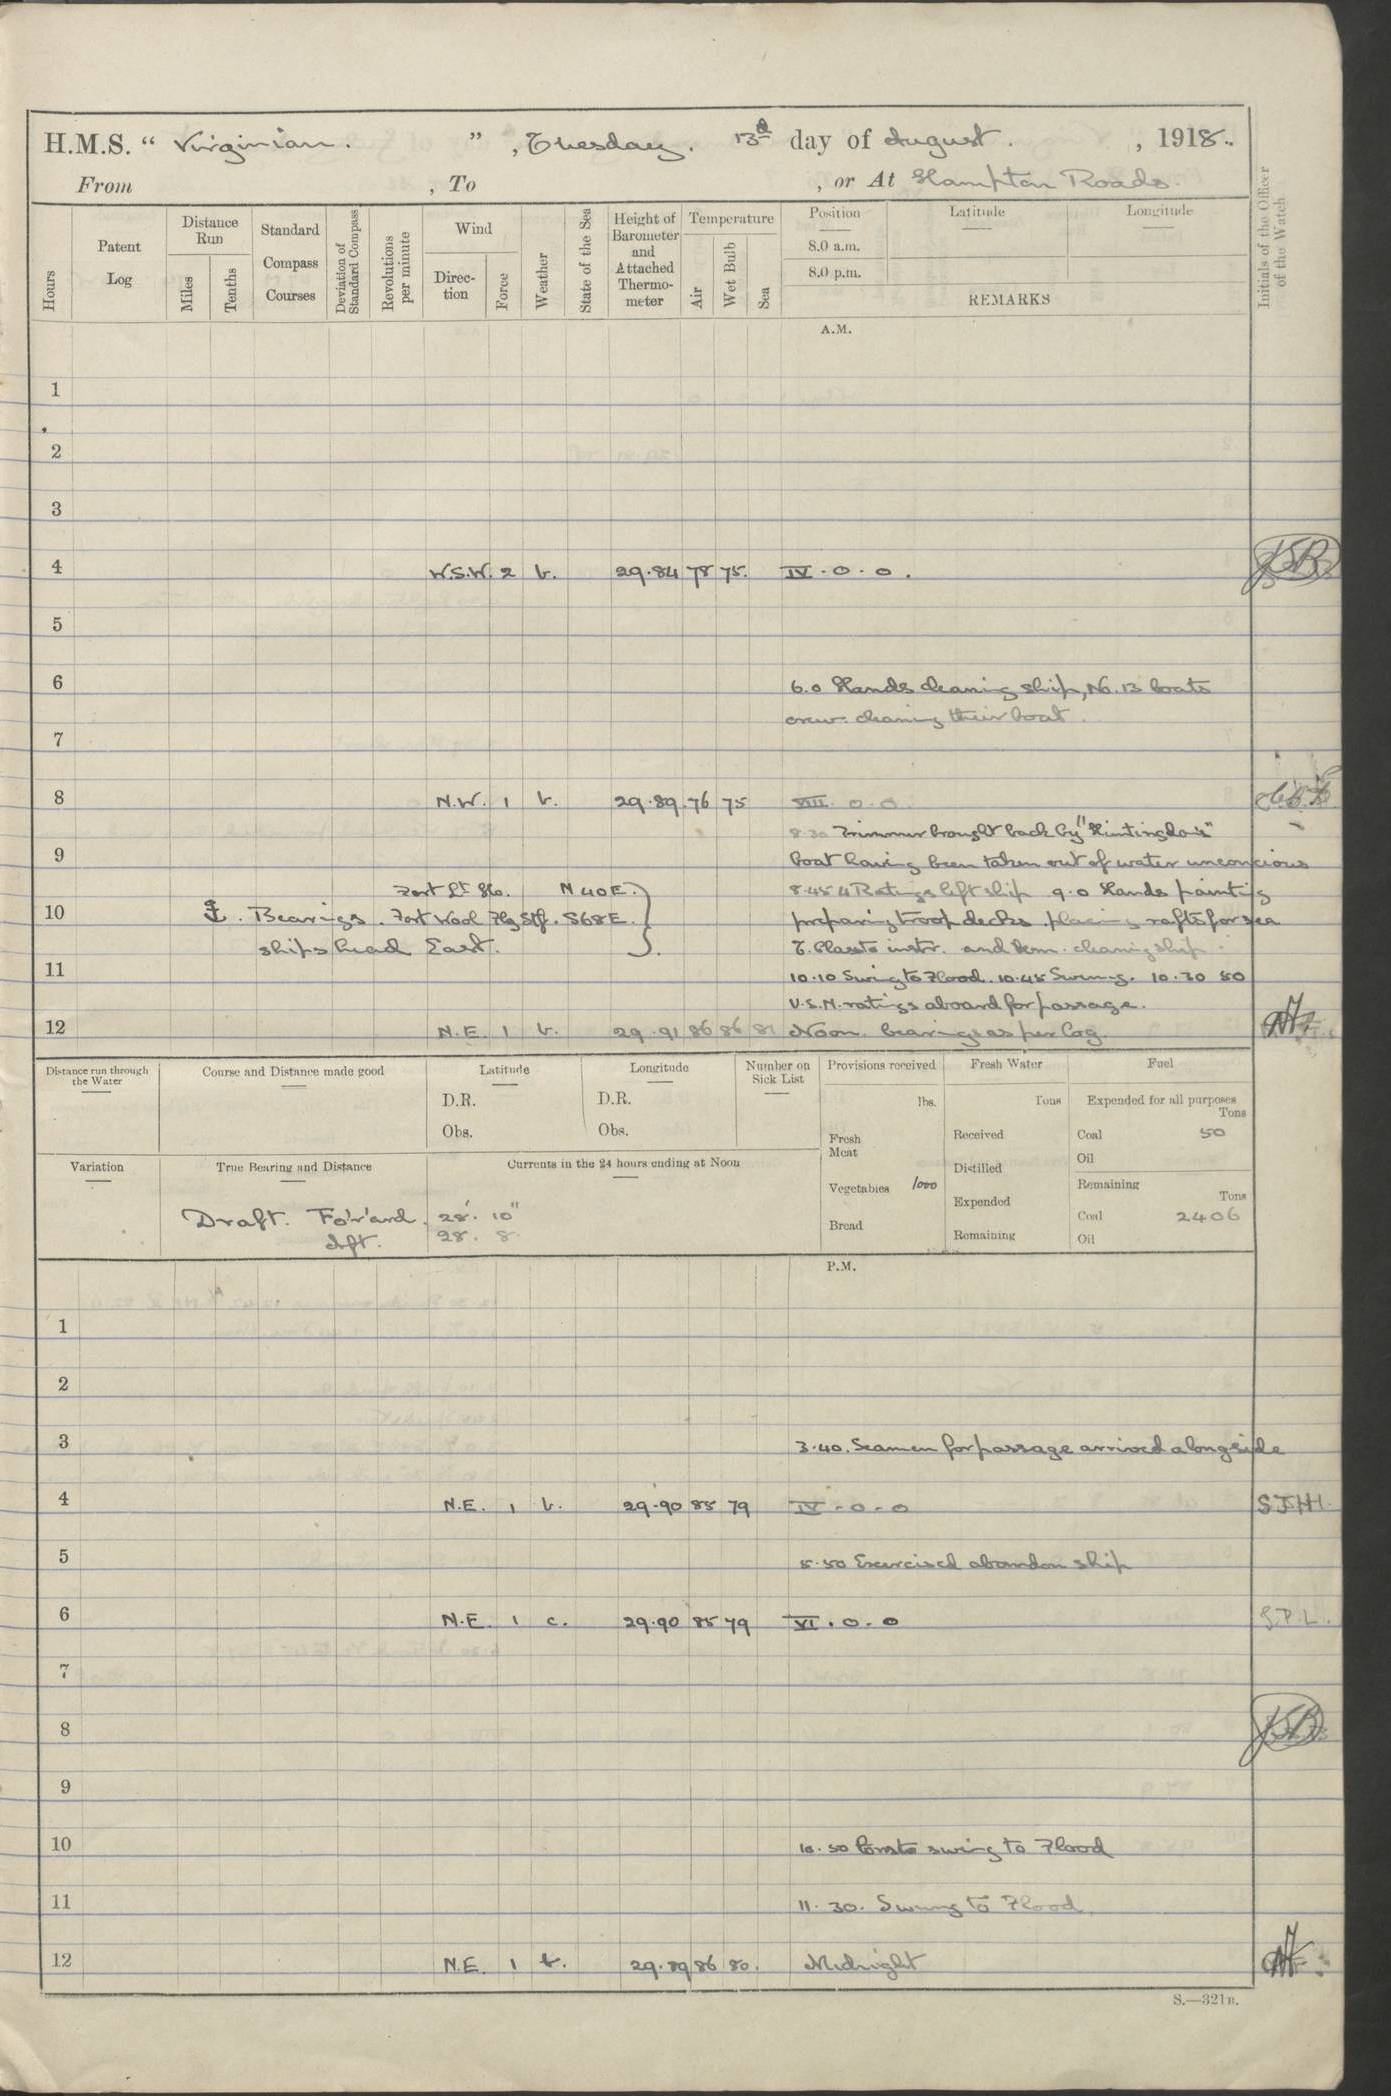 H.M.S. “ Virginian. ” , Tuesday. 13th day of August. , 1918.
From , To , or At Hampton Roads.
Hours
Patent Log
Distance Run
Miles
Tenths
Standard Compass Courses
Deviation of Standard Compass
Revolutions per minute
Wind
Direction
Force
Weather
State of the Sea
Height of Barometer and Attached Thermometer
Temperature
Air
Wet Bulb
Sea
Position
Latitude
Longitude
8.0 a.m.
8.0 p.m.
REMARKS
Initials of the Officer of the Watch
A.M.
1
2
3
4 W.S.W. 2 b. 29.84 78 75. IV . 0 . 0 .
5
6 6.0 Hands cleaning ship, No. 13 boats
crew cleaning their boat.
7
8 N.W. 1 b. 29.89 76 75 VIII. 0 . 0.
8.30 Trimmer brought back by "Huntingdon's"
9 boat having been taken out of water unconcious
Fort Lt. Ho. N 40 E. 8.45 4 Ratings left ship 9.0 Hands painting
10 Bearings. Fort Wool Flg Stf. S68E. preparing troop decks placing rafts for sea
ships head East. T. Classto instr. and Dem. cleaning ship.
11 10.10 Swing to Flood. 10.45 Swung. 10.30 50
U.S.N. ratings aboard for passage.
12 N.E. 1 b. 29.91 86 86 81 Noon bearings as per log.
Distance run through the Water
Course and Distance made good
Latitude
D.R.
Obs.
Longitude
D.R.
Obs.
Number on Sick List
Provisions received
lbs.
Fresh Meat
Vegetables 1000
Bread
Fresh Water
Tons
Received
Distilled
Expended
Remaining
Fuel
Expended for all purposes
Tons
Coal 50
Oil
Remaining
Tons
Coal 2406
Oil
Variation
True Bearing and Distance
Currents in the 24 hours ending at Noon
Draft. For'ard. 28' 10"
Aft. 28. 8
P.M.
1
2
3 3.40. Seamen for passage arrived alongside
4 N.E. 1 b. 29.90 85 79 IV - 0 - 0 SJHH.
5 5.50 Exercised abandon ship
6 N.E. 1 c. 29.90 85 79 VI . 0 . 0 J.P.L.
7
8
9
10 10.50 Comts swing to Flood
11 11.30. Swung to Flood.
12 N.E. 1 b. 29.89 86 80. Midnight
S.—321B.